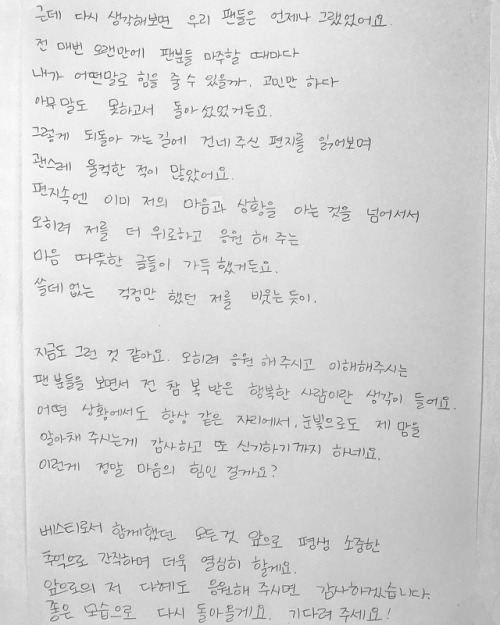 근데 다시 생각해보면 우리 팬들은 언제나 그랬었어요.
전 매번 오랜만에 팬분들 마주할 때마다
내가 어떤말로 힘을 줄 수 있을까. 고민만 하다
아무말도 못하고서 돌아섰었거든요.
그렇게 되돌아 가는길에 건네주신 편지를 읽어보며
괜스레 울컥한 적이 많았어요.
편지속엔 이미 저의 마음과 상황을 아는 것을 넘어서서
오히려 저를 더 위로하고 응원 해 주는
마음 따뜻한 글들이 가득 했거든요.
쓸데없는 걱정만 했던 저를 비웃는 듯이.
지금도 그런 것 같아요. 오히려 응원 해주시고 이해해주시는
팬분들을 보면서 전 참 복 받은 행복한 사람이란 생각이 들어요.
어떤 상황에서도 항상 같은 자리에서, 눈빛으로도 제 맘을
알아채 주시는게 감사하고 또 신기하기까지 하네요.
이런게 정말 마음의 힘인 걸까요?
베스티로서 함께했던 모든것 앞으로 평생 소중한
추억으로 간직하며 더욱 열심히 할게요.
앞으로의 저 다혜도 응원해 주시면 감사하겠습니다.
좋은 모습으로 다시 돌아올게요. 기다려 주세요!